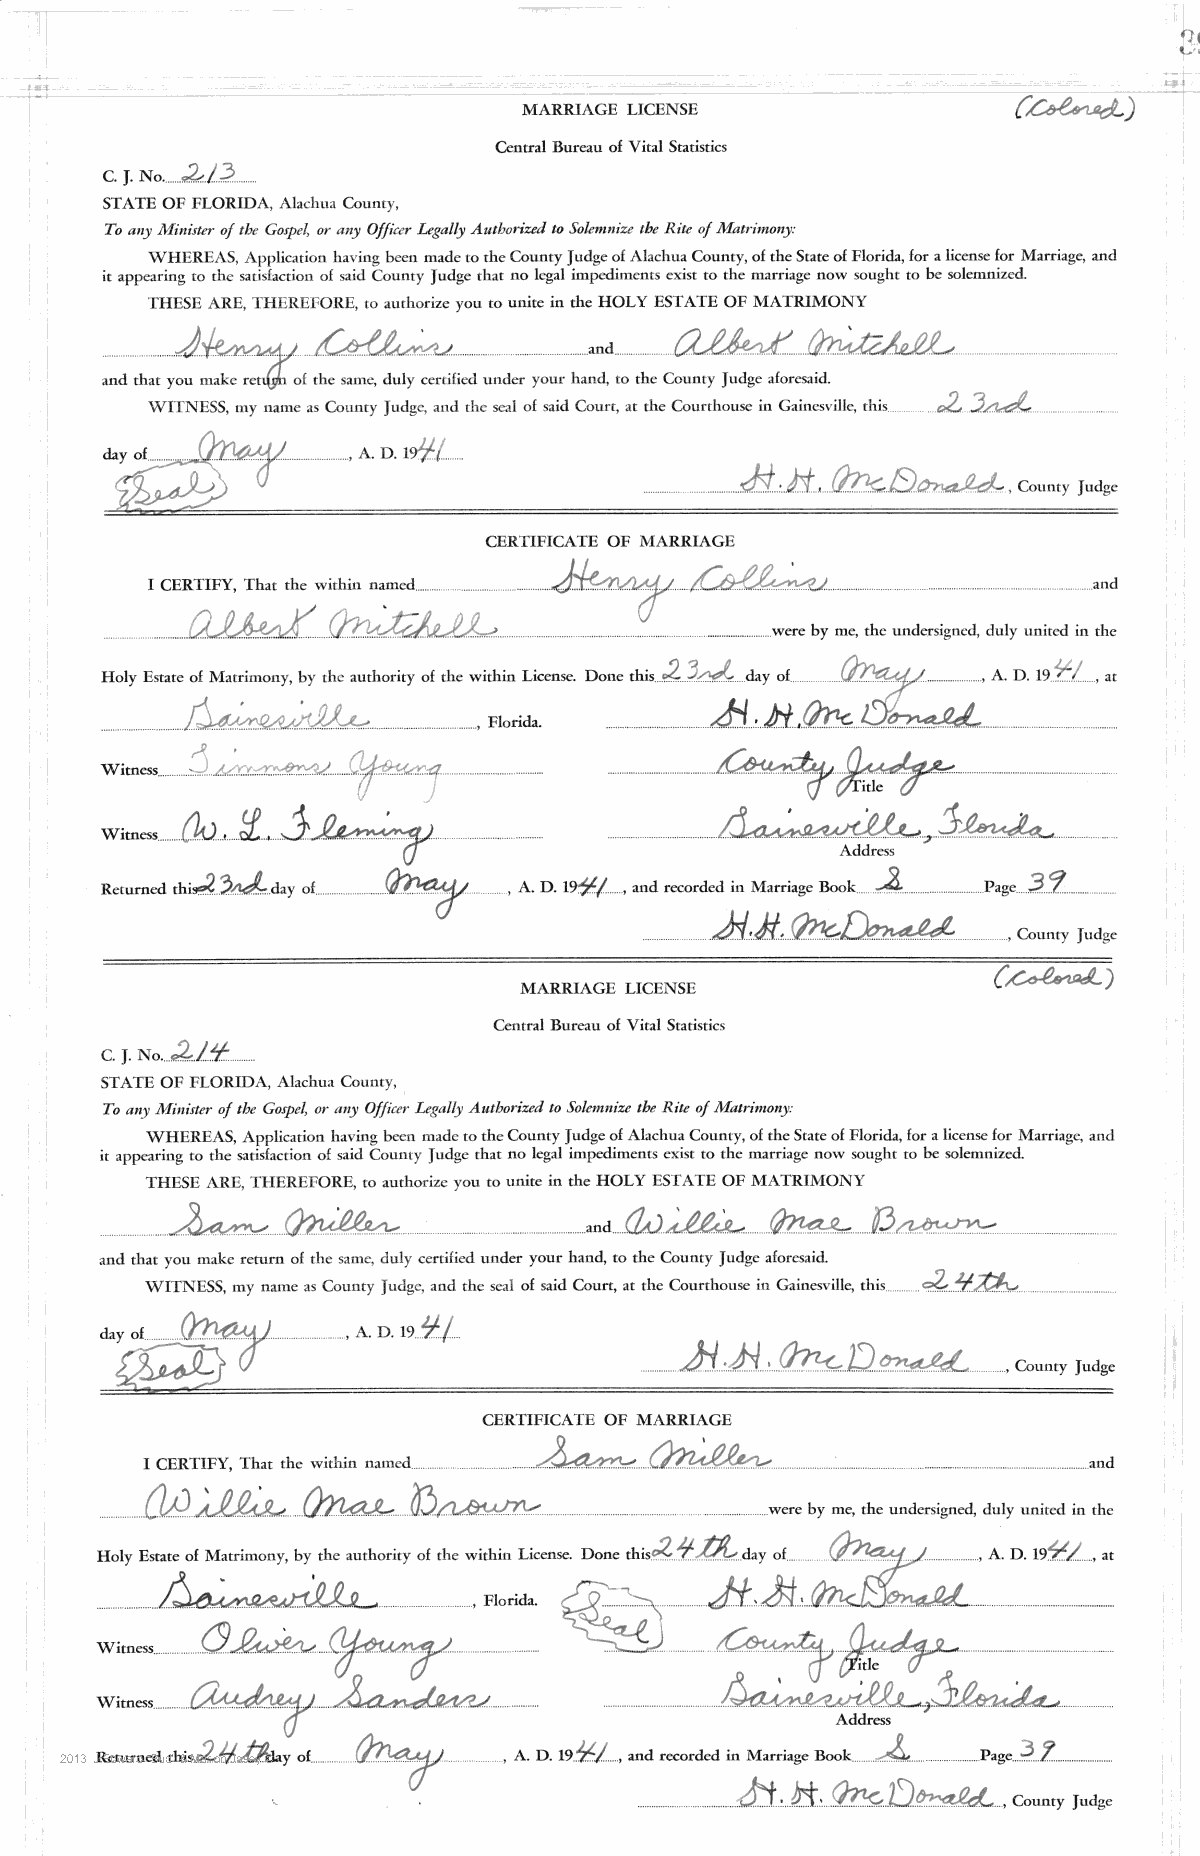 39
MARRIAGE LICENSE (Colored)
Central Bureau of Vital Statistics
C. J. No. 213
STATE OF FLORIDA, Alachua County,
To any Minister of the Gospel, or any Officer Legally Authorized to Solemnize the Rite of Matrimony:
WHEREAS, Application having been made to the County Judge of Alachua County, of the State of Florida, for a license for Marriage, and
it appearing to the satisfaction of said County Judge that no legal impediments exist to the marriage now sought to be solemnized.
THESE ARE, THEREFORE, to authorize you to unite in the HOLY ESTATE OF MATRIMONY
Henry Collins and Albert Mitchell
and that you make return of the same, duly certified under your hand, to the County Judge aforesaid.
WITNESS, my name as County Judge, and the seal of said Court, at the Courthouse in Gainesville, this 23rd
day of May, A. D. 1941
Seal H. H. McDonald, County Judge
CERTIFICATE OF MARRIAGE
I CERTIFY, That the within named Henry Collins and
Albert Mitchell were by me, the undersigned, duly united in the
Holy Estate of Matrimony, by the authority of the within License. Done this 23rd day of May, A. D. 1941, at
Gainesville, Florida. H. H. McDonald
Witness Timmons Young County Judge
Title
Witness W. L. Fleming Gainesville, Florida
Address
Returned this 23rd day of May, A. D. 1941, and recorded in Marriage Book S Page 39
H. H. McDonald, County Judge
(Colored)
MARRIAGE LICENSE
Central Bureau of Vital Statistics
C. J. No. 214
STATE OF FLORIDA, Alachua County,
To any Minister of the Gospel, or any Officer Legally Authorized to Solemnize the Rite of Matrimony:
WHEREAS, Application having been made to the County Judge of Alachua County, of the State of Florida, for a license for Marriage, and
it appearing to the satisfaction of said County Judge that no legal impediments exist to the marriage now sought to be solemnized.
THESE ARE, THEREFORE, to authorize you to unite in the HOLY ESTATE OF MATRIMONY
Sam Miller and Willie Mae Brown
and that you make return of the same, duly certified under your hand, to the County Judge aforesaid.
WITNESS, my name as County Judge, and the seal of said Court, at the Courthouse in Gainesville, this 24th
day of May, A. D. 1941
Seal H. H. McDonald, County Judge
CERTIFICATE OF MARRIAGE
I CERTIFY, That the within named Sam Miller and
Willie Mae Brown were by me, the undersigned, duly united in the
Holy Estate of Matrimony, by the authority of the within License. Done this 24th day of May, A. D. 1941, at
Gainesville, Florida. Seal H. H. McDonald
Witness Oliver Young County Judge
Title
Witness Audrey Sanders Gainesville, Florida
Address
2013 Returned this 24th day of May, A. D. 1941, and recorded in Marriage Book S Page 39
H. H. McDonald, County Judge